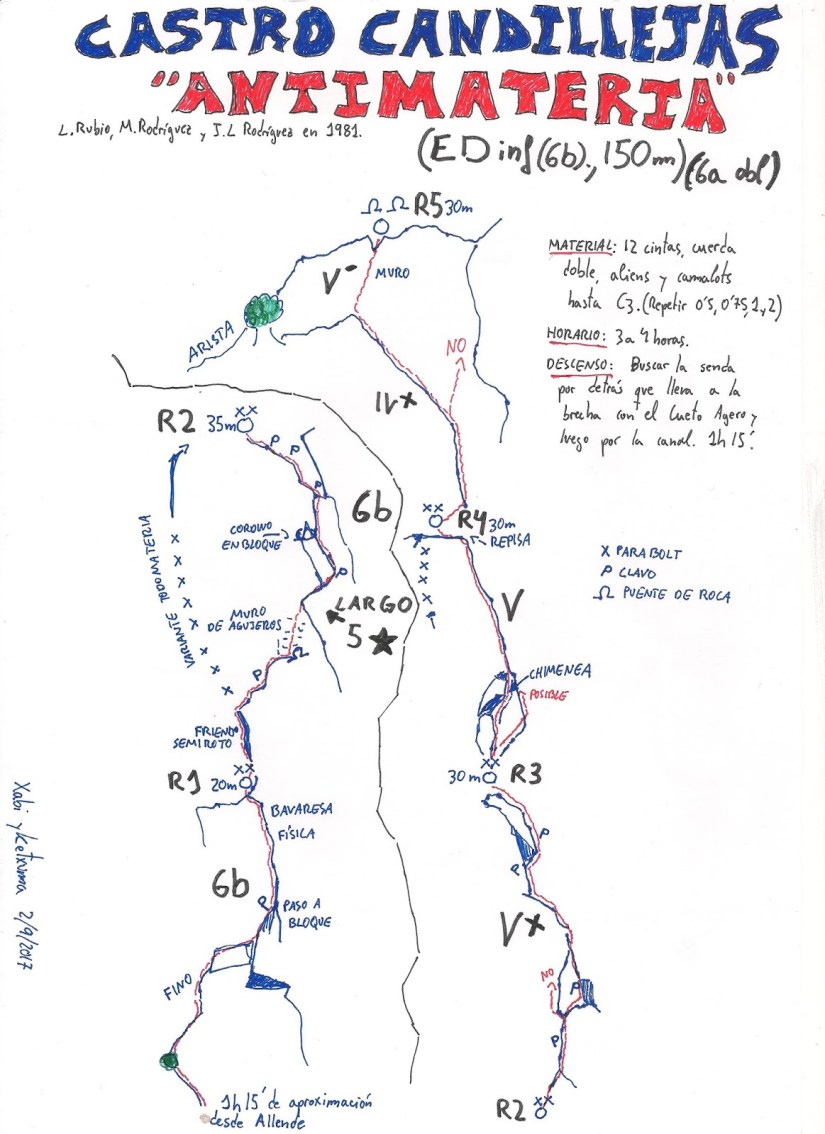 CASTRO CANDILLEJAS
"ANTIMATERIA"
L. Rubio, M. Rodríguez y J.L Rodríguez en 1981.
(ED inf (6b)., 150m) (6a obl)
Ω Ω R5 30m
V- MURO
ARISTA
NO
IV+
MATERIAL: 12 cintas, cuerda
doble, aliens y camalots
hasta C3. (Repetir 0'5, 0'75, 1 y 2)
HORARIO: 3 a 4 horas.
DESCENSO: Buscar la senda
por detrás que lleva a la
brecha con el Cueto Agero y
luego por la canal. 1h 15'.
x PARABOLT
P CLAVO
Ω PUENTE DE ROCA
R2 35m xx
P P
P
6b
CORDINO
EN BLOQUE
P
VARIANTE TODOMATERIA
x x x x x x x x
MURO
DE AGUJEROS
Ω
P
LARGO
5 ★
FRIEND
SEMIROTO
xx
R1 20m
BAVARESA
FÍSICA
6b
P PASO A
BLOQUE
FINO
1h 15' de aproximación
desde Allende
xx
R4 30m
REPISA
x x x x x
V
CHIMENEA
POSIBLE
xx
30m R3
P
P
V+
NO
P
P
R2 xx
Xabi y Ketxuma 2/9/2017